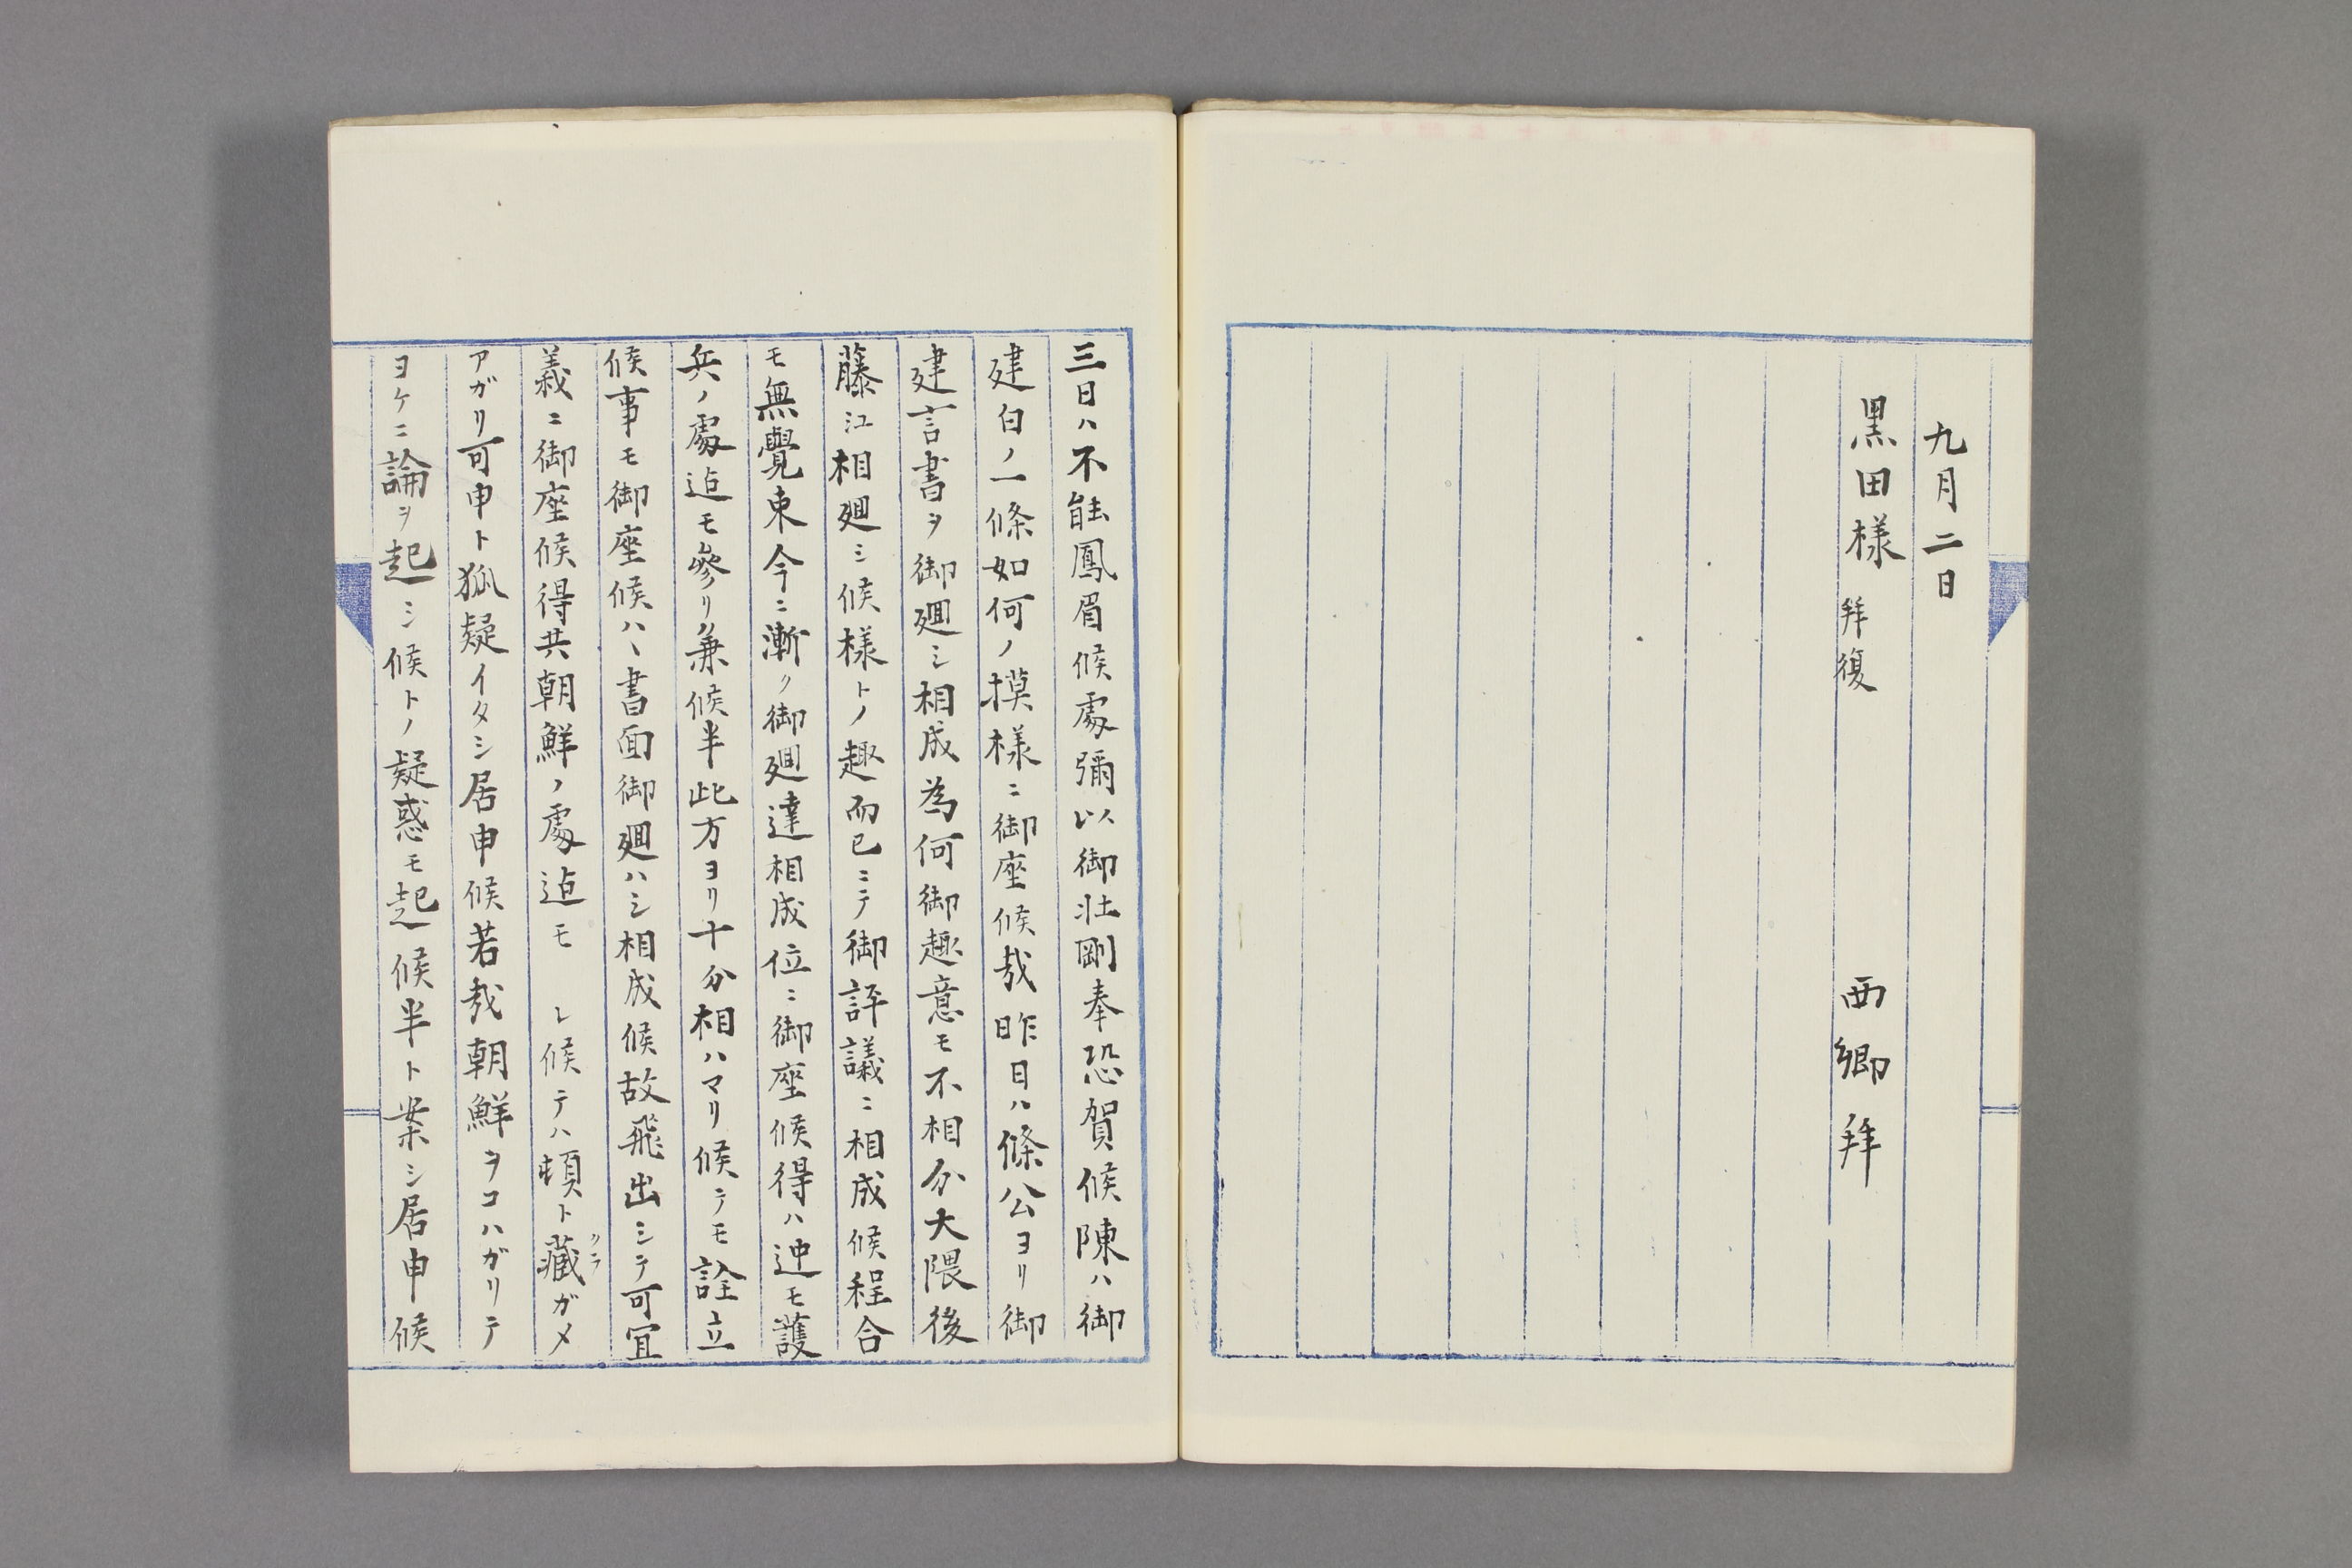 九月二日
黒田様 拜復 西郷拜
三日ハ不能鳳眉候處彌以御壯剛奉恐賀候陳ハ御
建白ノ一條如何ノ摸様ニ御座候哉昨日ハ條公ヨリ御
建言書ヲ御廻シ相成為何御趣意モ不相分大隈後
藤江相廻シ候様トノ趣而已ニテ御評議ニ相成候程合
モ無覺束今ニ漸ク御廻達相成位ニ御座候得ハ迚モ護
兵ノ處迠モ參リ兼候半此方ヨリ十分相ハマリ候テモ詮立
候事モ御座候ハヽ書面御廻ハシ相成候故飛出シテ可宜
義ニ御座候得共朝鮮ノ處迠モ レ候テハ頓ト藏ガメ
クラ
アガリ可申ト狐疑イタシ居申候若哉朝鮮ヲコハガリテ
ヨケニ論ヲ起シ候トノ疑惑モ起候半ト案シ居申候